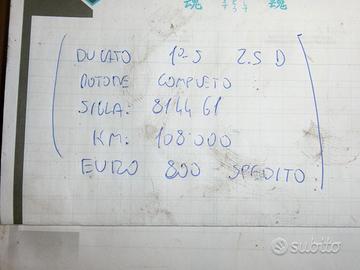 DUCATO 1°S 2.5 D
MOTORE COMPLETO
SIGLA: 8144 61
KM: 108'000
EURO 800 SPEDITO
subito